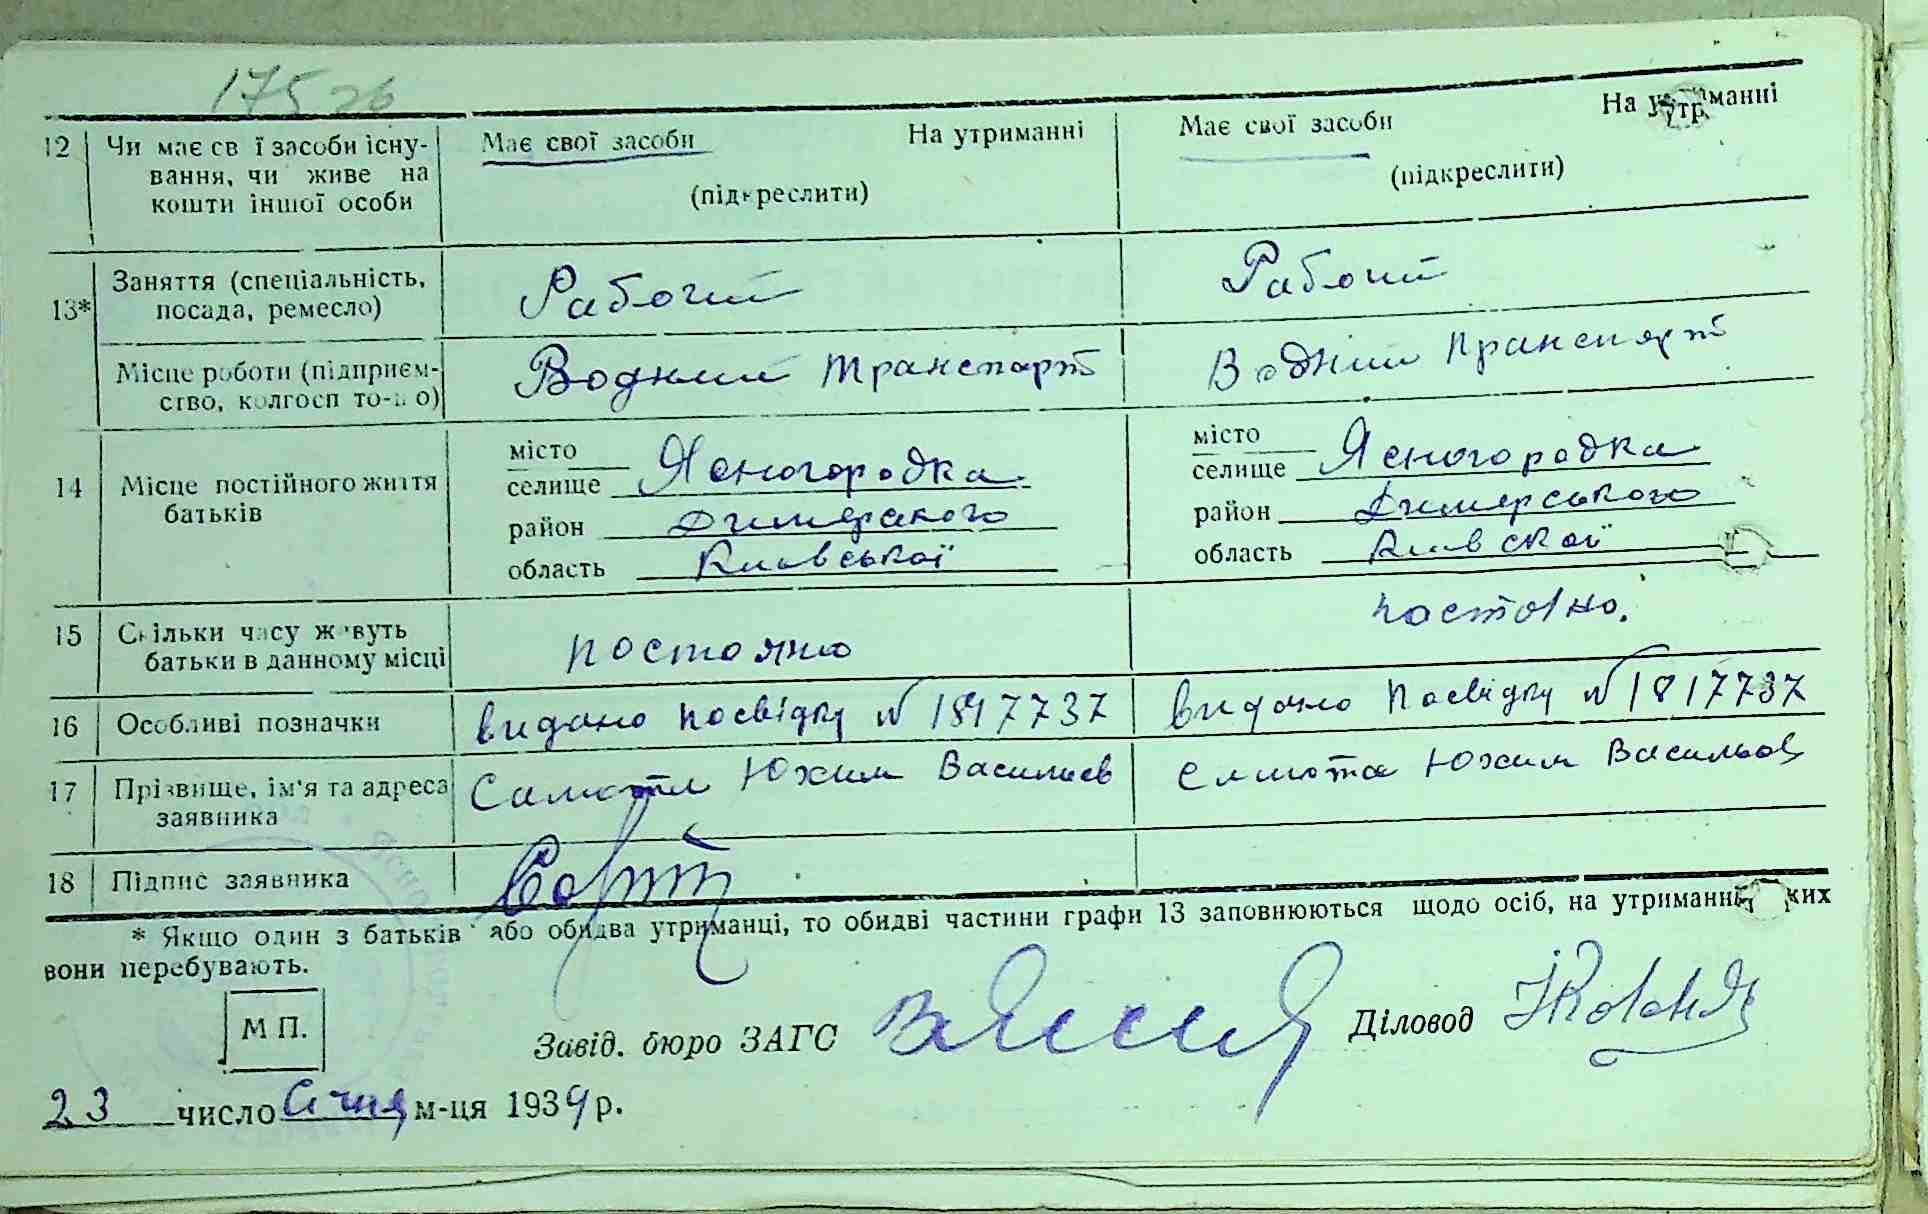 175 зв
12 Чи має св ї засоби існу- Має свої засоби На утриманні Має свої засоби На утриманні
вання, чи живе на (підкреслити) (підкреслити)
кошти іншої особи
13* Заняття (спеціальність, Рабочий Рабочий
посада, ремесло)
Місце роботи (підприєм- Водний транспорт Водний транспорт
ство, колгосп то-що)
14 Місце постійного життя місто місто
батьків селище Ясногородка селище Ясногородка
район Димерського район Димерського
область Киівської область Киівской
15 Скільки часу живуть постояно
батьки в данному місці
16 Особливі позначки видано посвідку № 1817737 видано посвідку № 1817737
17 Прізвище, ім'я та адреса Юхим Васильев Юхим
заявника
18 Підпис заявника
* Якщо один з батьків або обидва утриманці, то обидві частини графи 13 заповнюються щодо осіб, на утриманні яких
вони перебувають.
М П.
Завід. бюро ЗАГС Діловод
23 число Січня м-ця 1939 р.